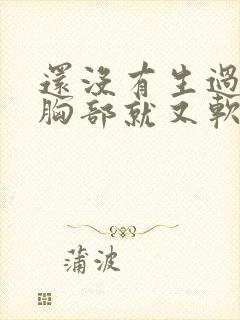 還沒有生過
胸部就又軟
蒲波